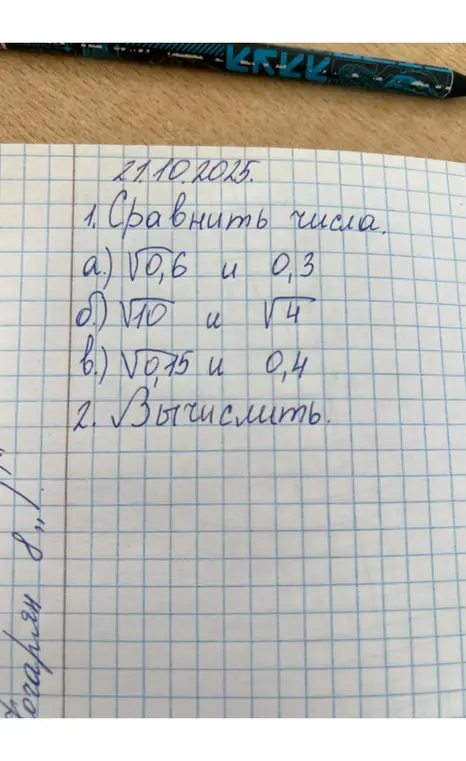 21.10.2025.
1. Сравнить числа.
а.) √0,6 и 0,3
б.) √10 и √4
в.) √0,15 и 0,4
2. Вычислить.
8 „